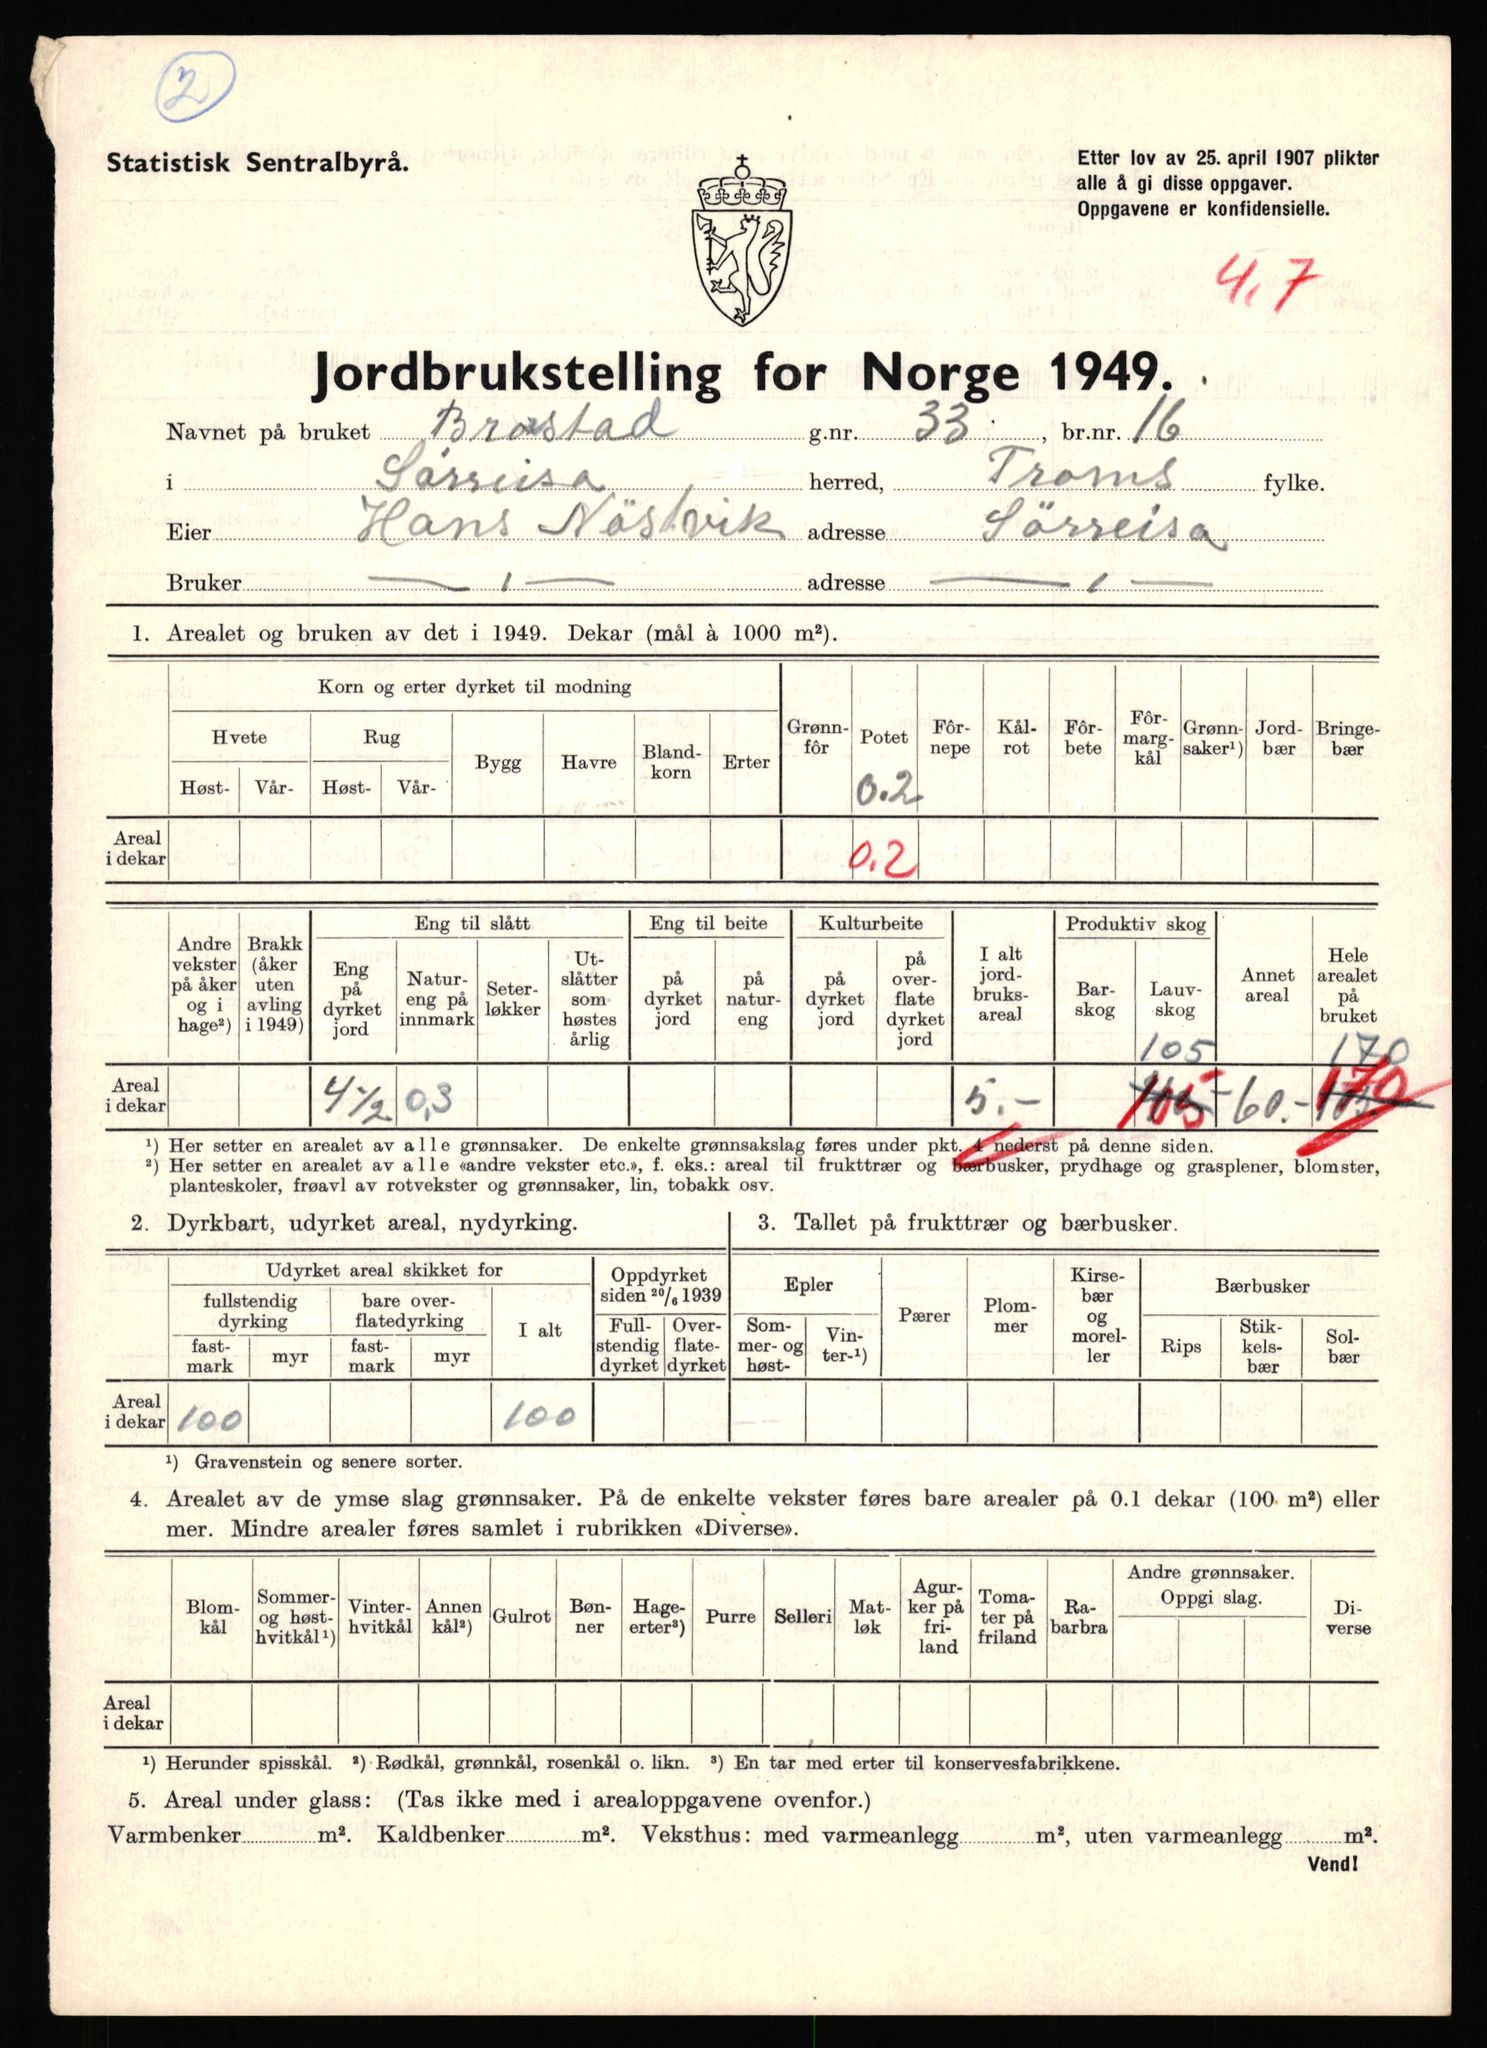 2
Statistisk Sentralbyrå.
Etter lov av 25. april 1907 plikter
alle å gi disse oppgaver.
Oppgavene er konfidensielle.
4,7
Jordbrukstelling for Norge 1949.
Navnet på bruket Brostad g.nr. 33, br.nr. 16
i Sörreisa herred, Troms fylke.
Eier Hans Nöstvik adresse Sörreisa
Bruker — 1 — adresse — 1 —
1. Arealet og bruken av det i 1949. Dekar (mål à 1000 m²).
Korn og erter dyrket til modning
Hvete Rug Bygg Havre Bland-korn Erter Grønn-fôr Potet Fôr-nepe Kål-rot Fôr-bete Fôr-marg-kål Grønn-saker¹) Jord-bær Bringe-bær
Høst- Vår- Høst- Vår- 0.2
Areal i dekar 0.2
Andre vekster på åker og i hage²) Brakk (åker uten avling i 1949) Eng til slått Eng til beite Kulturbeite I alt jord-bruks-areal Produktiv skog Annet areal Hele arealet på bruket
Eng på dyrket jord Natur-eng på innmark Seter-løkker Ut-slåtter som høstes årlig på dyrket jord på natur-eng på dyrket jord på over-flate dyrket jord Bar-skog Lauv-skog
105 170
Areal i dekar 4½ 0,3 5.- 105 60.- 170
¹) Her setter en arealet av alle grønnsaker. De enkelte grønnsakslag føres under pkt. 4 nederst på denne siden.
²) Her setter en arealet av alle «andre vekster etc.», f. eks.: areal til frukttrær og bærbusker, prydhage og grasplener, blomster,
planteskoler, frøavl av rotvekster og grønnsaker, lin, tobakk osv.
2. Dyrkbart, udyrket areal, nydyrking.
Udyrket areal skikket for Oppdyrket siden 20/6 1939
fullstendig dyrking bare over-flatedyrking I alt Full-stendig dyrket Over-flate-dyrket
fast-mark myr fast-mark myr
Areal i dekar 100 100
3. Tallet på frukttrær og bærbusker.
Epler Pærer Plom-mer Kirse-bær og morel-ler Bærbusker
Som-mer- og høst- Vin-ter-¹) Rips Stik-kels-bær Sol-bær
¹) Gravenstein og senere sorter.
4. Arealet av de ymse slag grønnsaker. På de enkelte vekster føres bare arealer på 0.1 dekar (100 m²) eller
mer. Mindre arealer føres samlet i rubrikken «Diverse».
Blom-kål Sommer- og høst-hvitkål¹) Vinter-hvitkål Annen kål²) Gulrot Bøn-ner Hage-erter³) Purre Selleri Mat-løk Agur-ker på fri-land Toma-ter på friland Ra-barbra Andre grønnsaker. Oppgi slag. Di-verse
Areal i dekar
¹) Herunder spisskål. ²) Rødkål, grønnkål, rosenkål o. likn. ³) En tar med erter til konservesfabrikkene.
5. Areal under glass: (Tas ikke med i arealoppgavene ovenfor.)
Varmbenker m². Kaldbenker m². Veksthus: med varmeanlegg m², uten varmeanlegg m².
Vend!